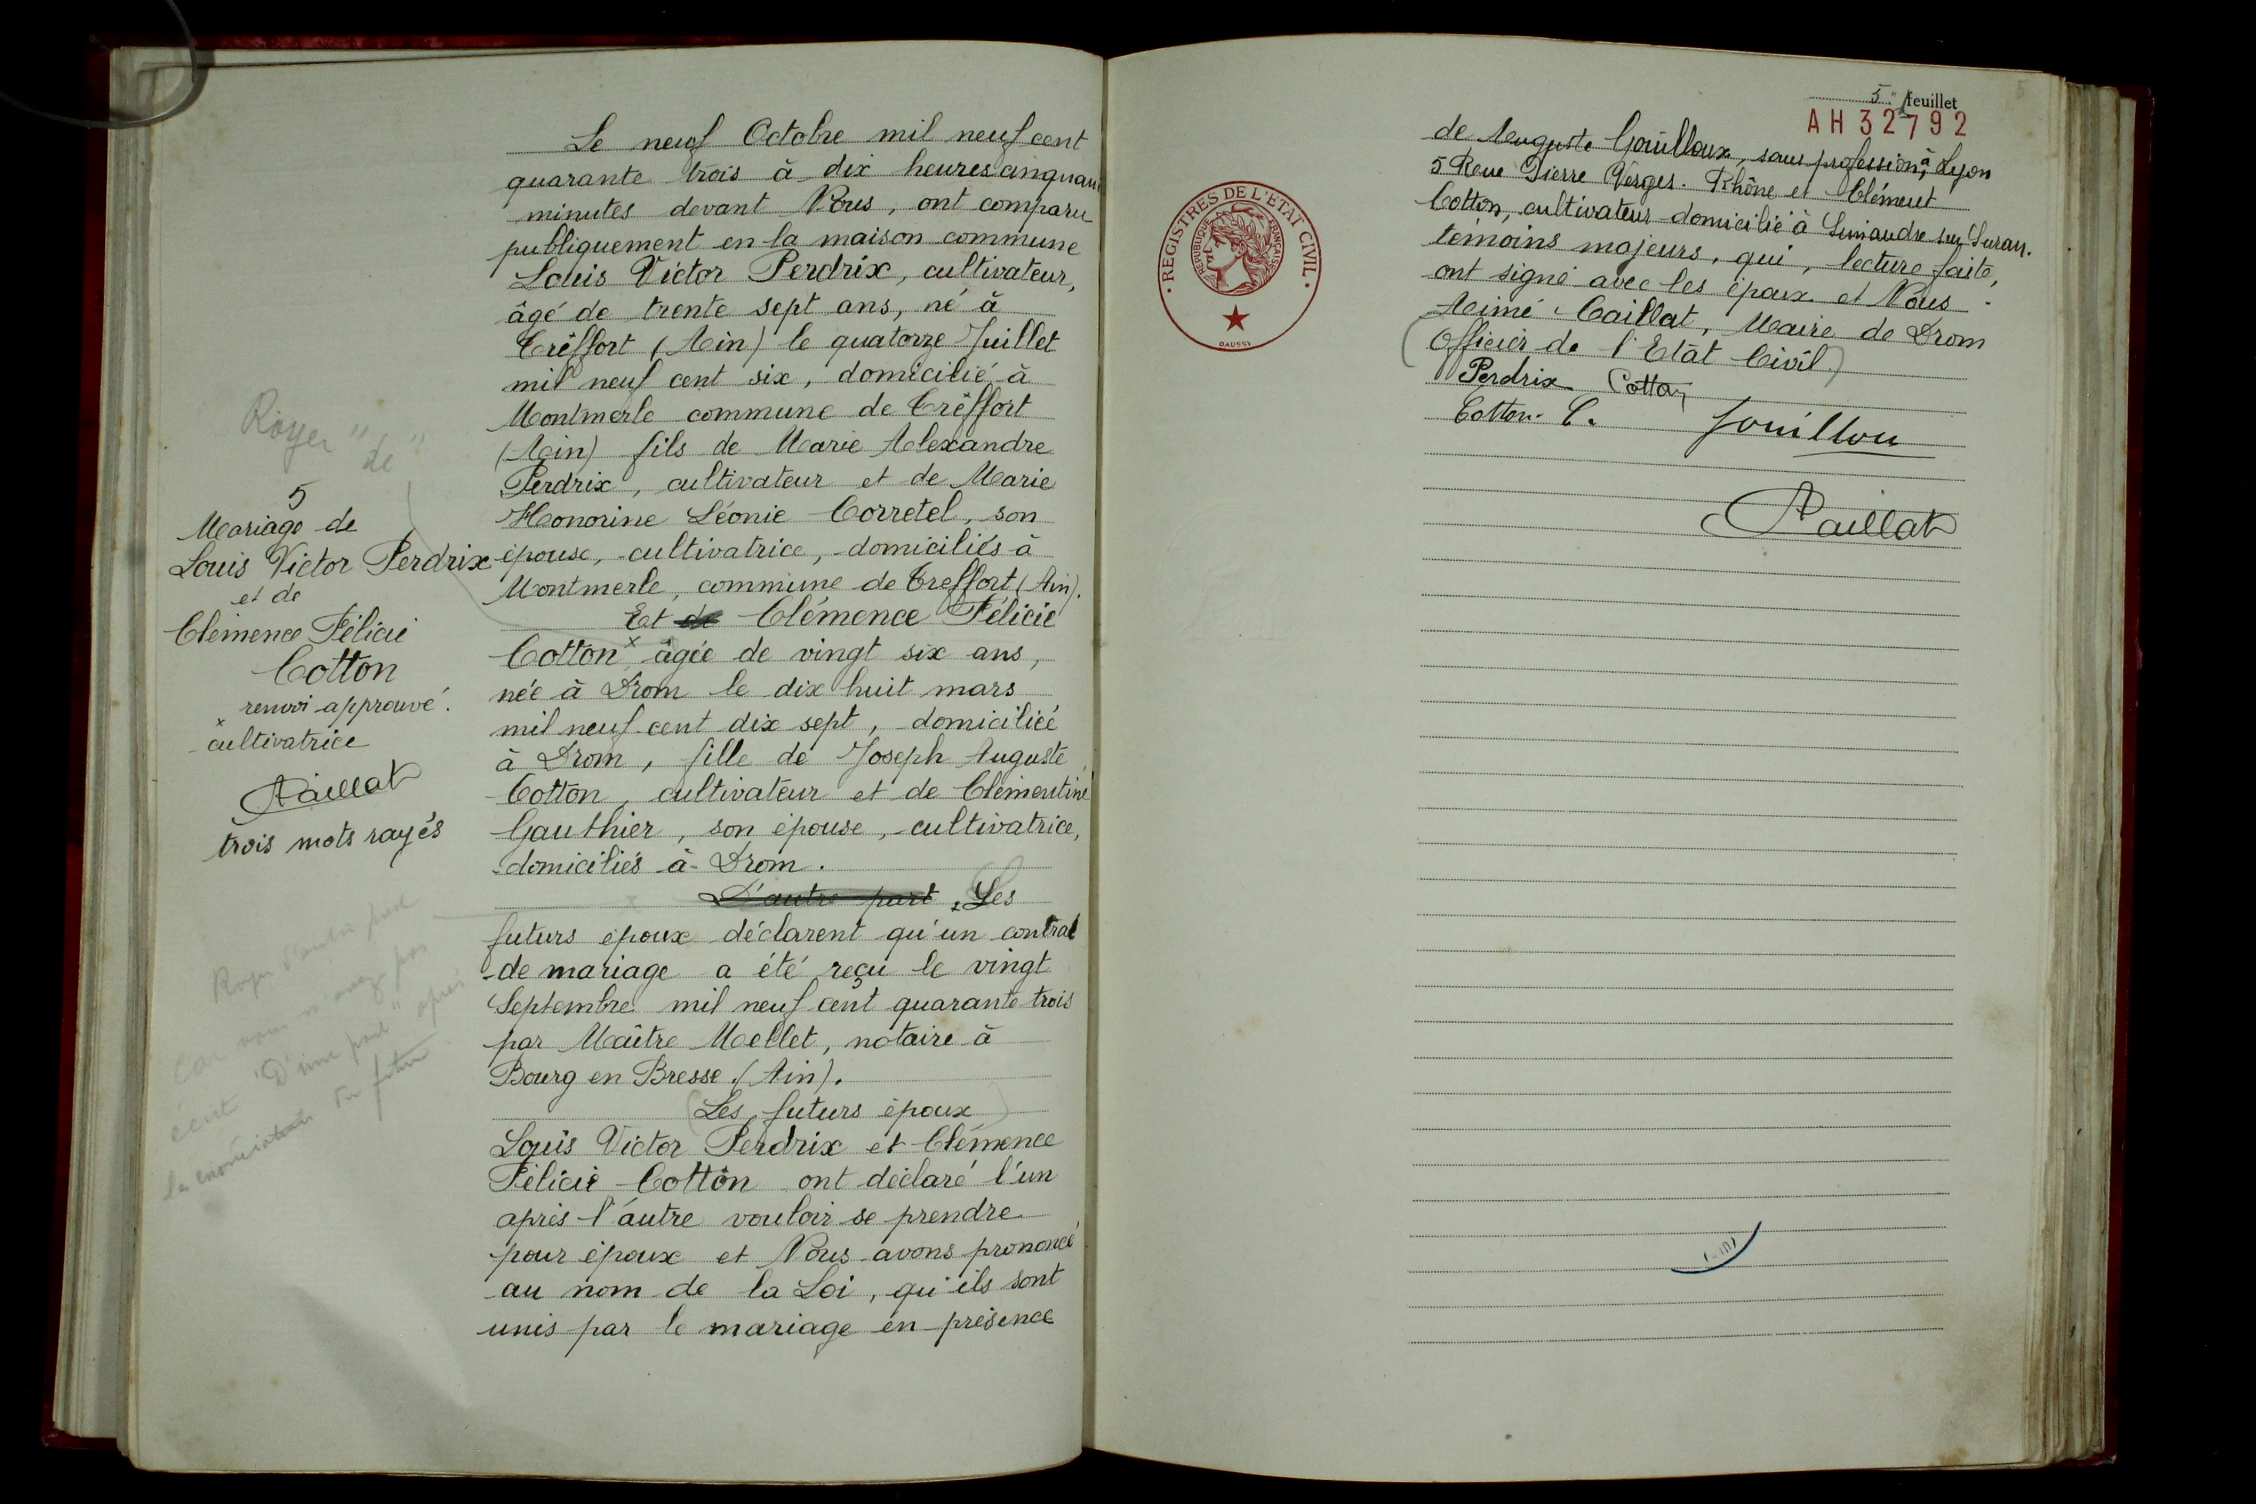 Royer "de"
5
Mariage de
Louis Victor Perdrix
et de
Clémence Félicie
Cotton
renvoi approuvé.
x cultivatrice
ACaillat
trois mots rayés
Royer d'autre part
car vous n'avez pas
écrit "D'une part" après
du futur
Le neuf Octobre mil neuf cent
quarante trois à dix heures cinquante
minutes devant Nous, ont comparu
publiquement en la maison commune
Louis Victor Perdrix, cultivateur,
âgé de trente sept ans, né à
Treffort (Ain) le quatorze Juillet
mil neuf cent six, domicilié à
Montmerle commune de Treffort
(Ain) fils de Marie Alexandre
Perdrix, cultivateur et de Marie
Honorine Léonie Corretel, son
épouse, cultivatrice, domiciliés à
Montmerle, commune de Treffort (Ain).
Et de Clémence Félicie
Cotton x âgée de vingt six ans,
née à Drom le dix huit mars
mil neuf cent dix sept, domiciliée
à Drom, fille de Joseph Auguste
Cotton, cultivateur et de Clémentine
Gauthier, son épouse, cultivatrice,
domiciliés à Drom.
D'autre part. Les
futurs époux déclarent qu'un contrat
de mariage a été reçu le vingt
Septembre mil neuf cent quarante trois
par Maître Mellet, notaire à
Bourg en Bresse (Ain).
(Les futurs époux)
Louis Victor Perdrix et Clémence
Félicie Cotton ont déclaré l'un
après l'autre vouloir se prendre
pour époux et Nous avons prononcé
au nom de la Loi, qu'ils sont
unis par le mariage en présence
REGISTRES DE L'ÉTAT CIVIL
RÉPUBLIQUE FRANÇAISE
DAUSSY
5e feuillet
AH 32792
de Auguste Gouilloux, sans profession, à Lyon
5 Rue Pierre Verger. Rhône et Clément
Cotton, cultivateur domicilié à Simandre sur Suran.
témoins majeurs, qui, lecture faite,
ont signé avec les époux et Nous
Aimé Caillat, Maire de Drom
(Officier de l'Etat Civil.)
Perdrix Cotton
Cotton. C. Gouilloux
ACaillat